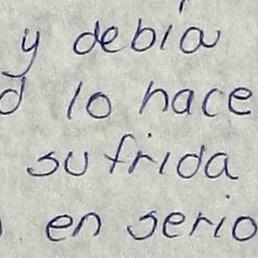 y debia
lo hace
sufrida
en serio